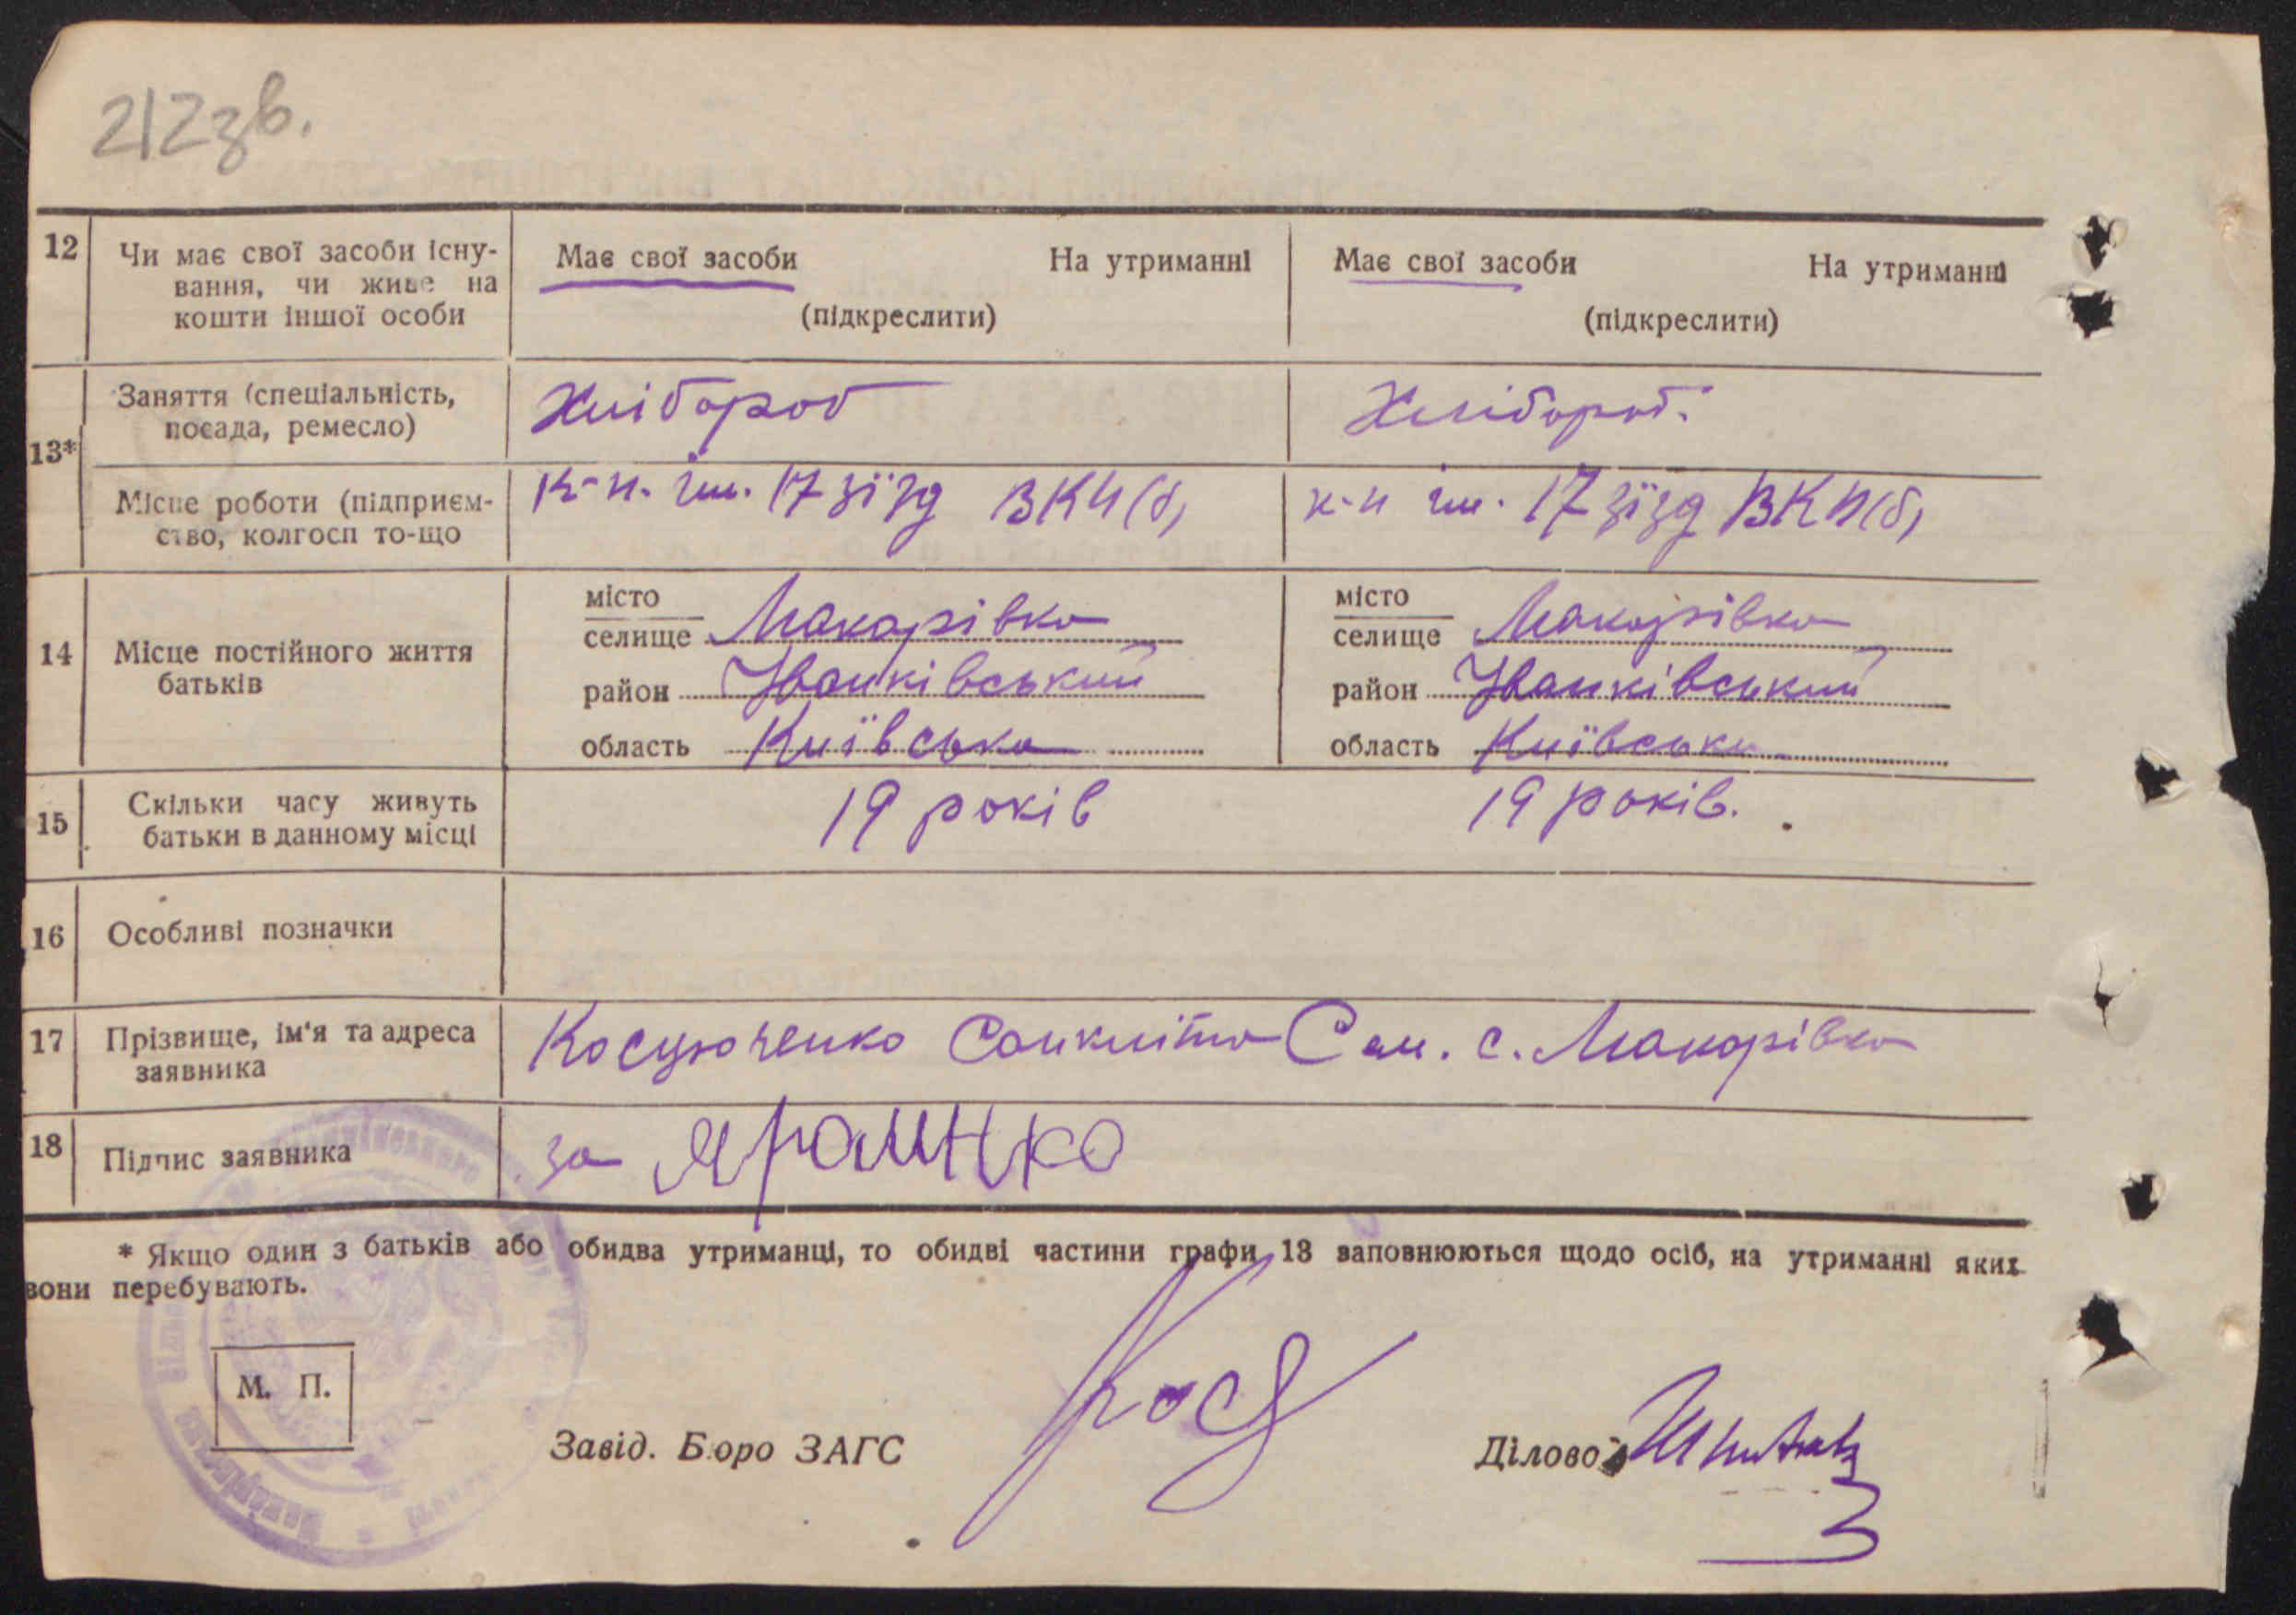 212зв.
12 Чи має свої засоби існу- Має свої засоби На утриманні Має свої засоби На утриманні
вання, чи живе на
кошти іншої особи (підкреслити) (підкреслити)
13* Заняття (спеціальність, Хлібороб Хлібороб.
посада, ремесло)
Місце роботи (підприєм- к-п. ім. 17 зїзд ВКП(б) к-п ім. 17 зїзд ВКП(б)
ство, колгосп то-що
14 Місце постійного життя батьків
місто місто
селище Макарівка селище Макарівка
район Іванківський район Іванківський
область Київська область Київська
15 Скільки часу живуть 19 років 19 років.
батьки в данному місці
16 Особливі позначки
17 Прізвище, ім'я та адреса с. Макарівка
заявника
18 Підпис заявника за
* Якщо один з батьків або обидва утриманці, то обидві частини графи 13 заповнюються щодо осіб, на утриманні яких
вони перебувають.
М. П.
Завід. Бюро ЗАГС Діловод